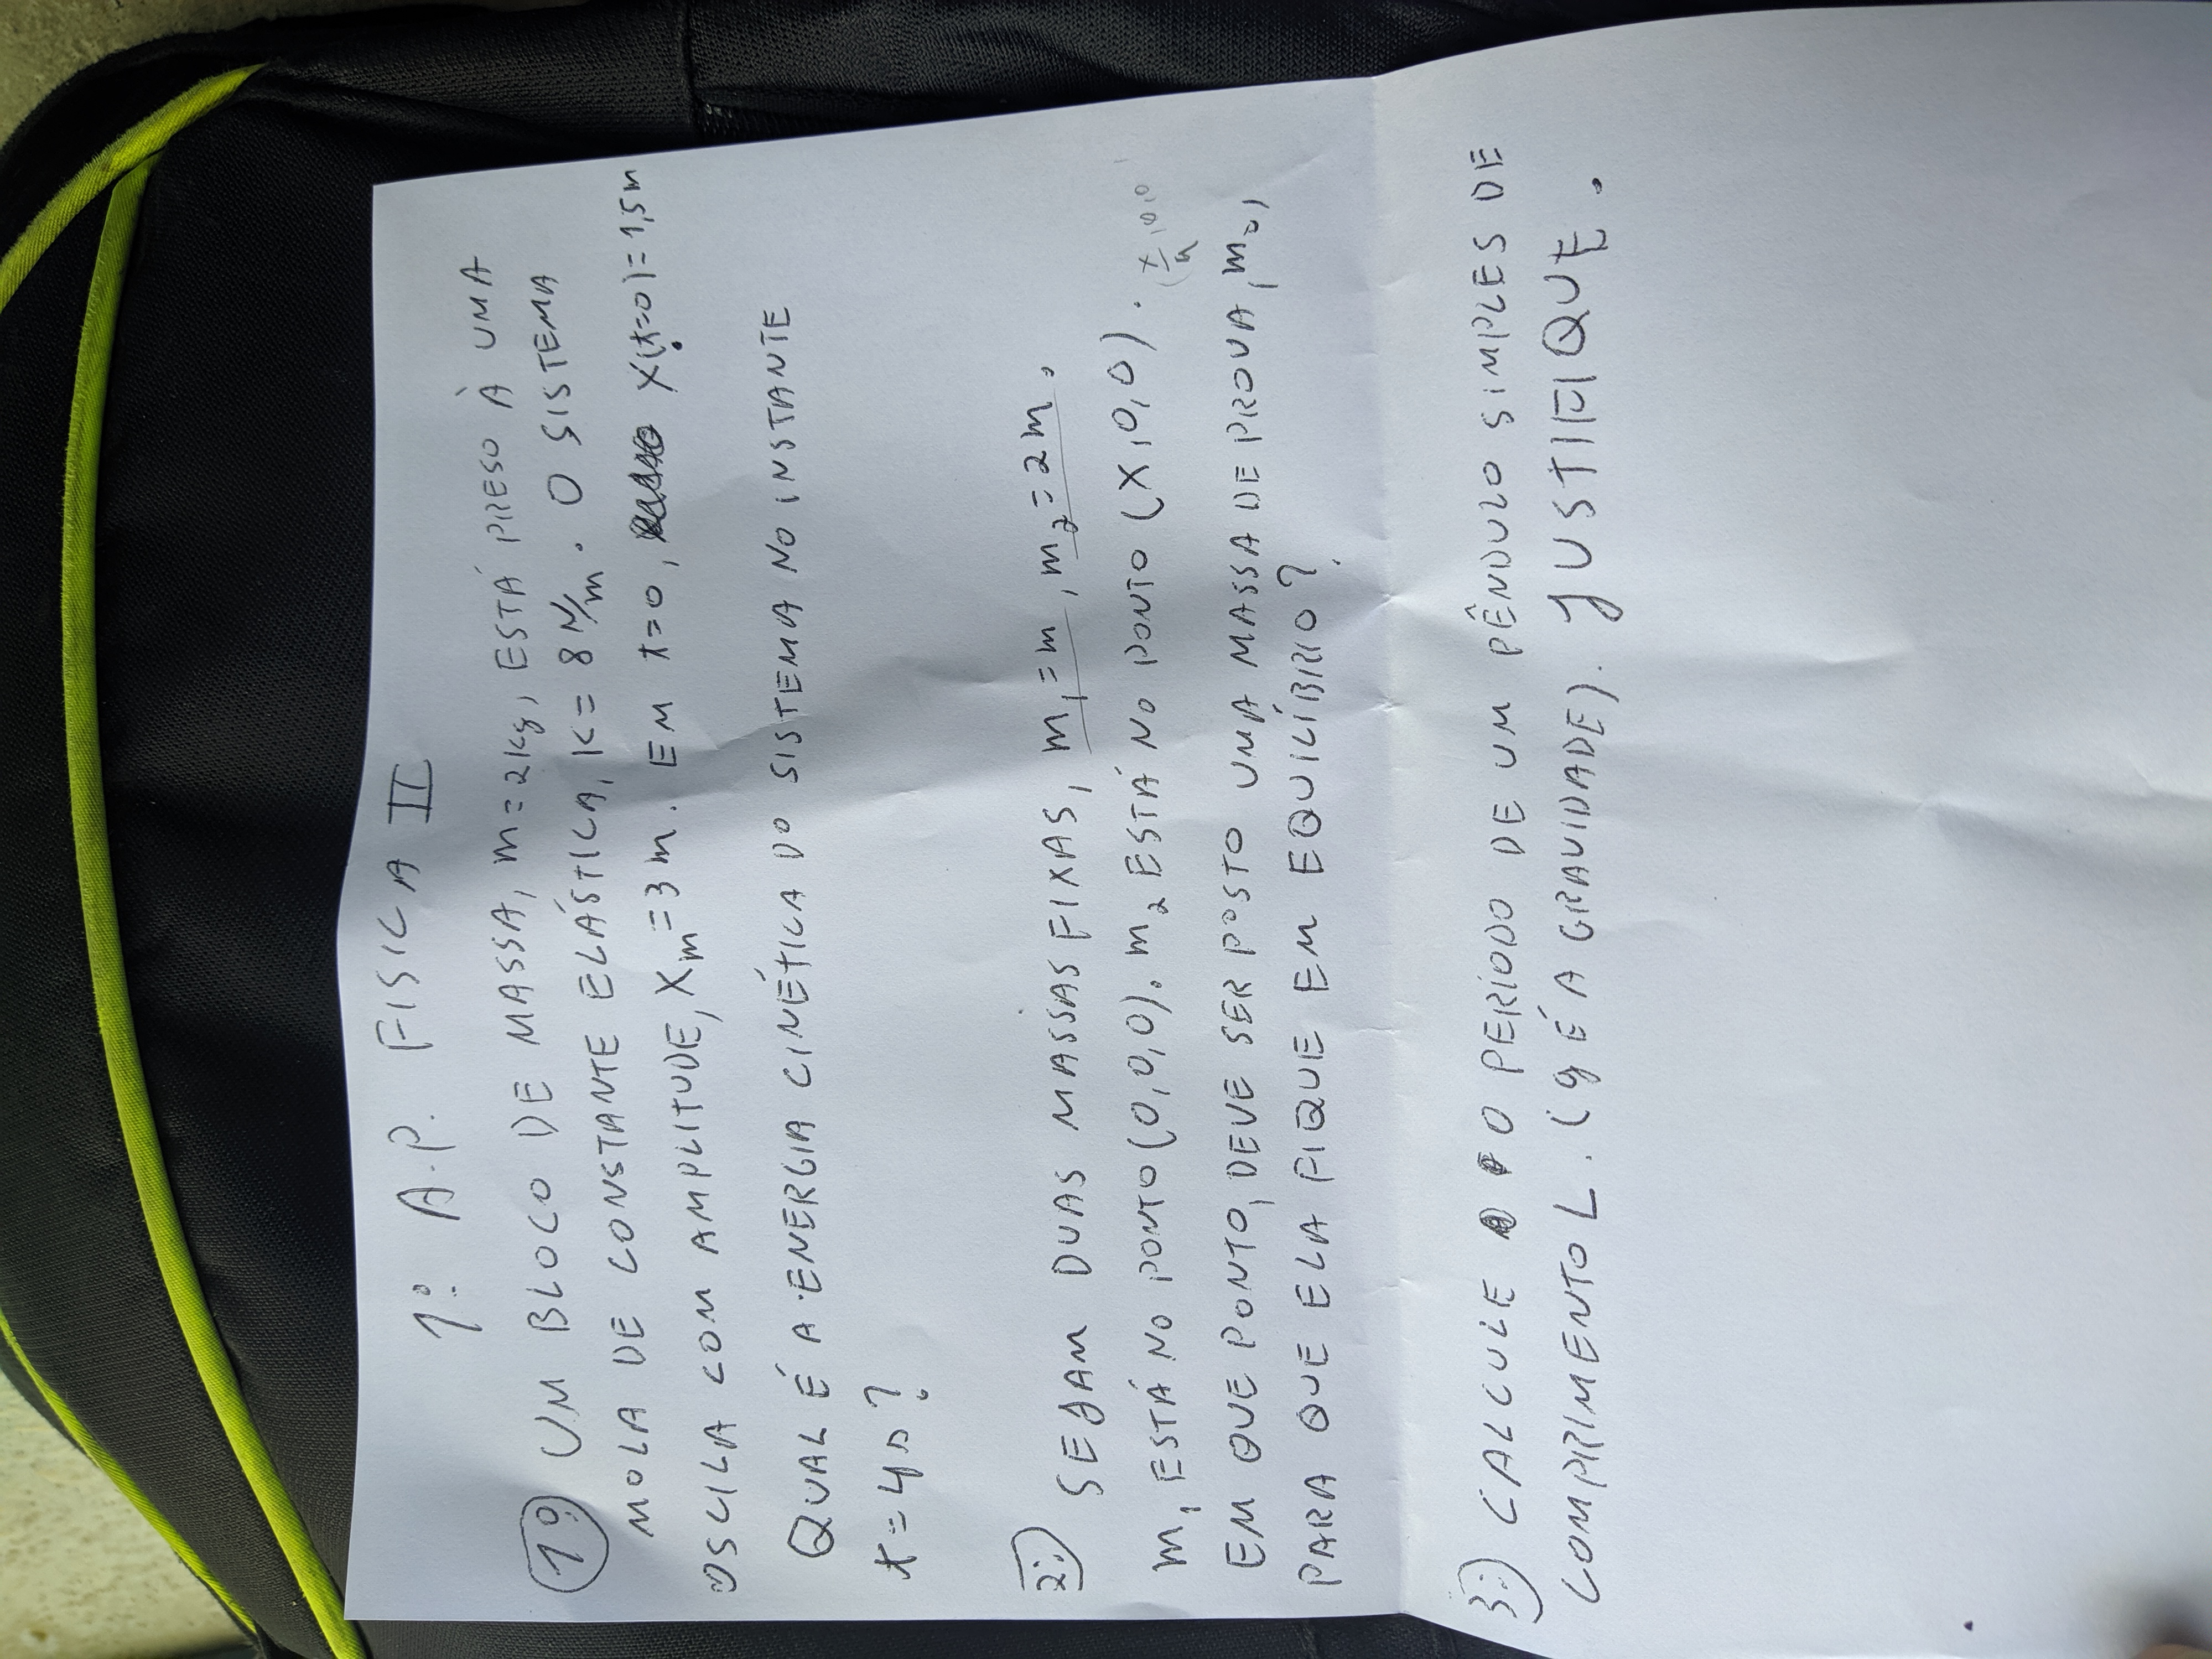 1ª A.P. FISICA II
1º UM BLOCO DE MASSA, m=2kg, ESTÁ PRESO À UMA
MOLA DE CONSTANTE ELÁSTICA, K=8N/m. O SISTEMA
OSCILA COM AMPLITUDE, Xm=3m. EM t=0, X(t=0)=1,5m
QUAL É A ENERGIA CINÉTICA DO SISTEMA NO INSTANTE
t=4s?
2º) SEJAM DUAS MASSAS FIXAS, m1=m, m2=2m.
m1 ESTÁ NO PONTO (0,0,0). m2 ESTÁ NO PONTO (X,0,0).
(x/4,0,0
EM QUE PONTO, DEVE SER POSTO UMA MASSA DE PROVA,
PARA QUE ELA FIQUE EM EQUILÍBRIO?
3º) CALCULE O PERÍODO DE UM PÊNDULO SIMPLES DE
COMPRIMENTO L. (g É A GRAVIDADE). JUSTIFIQUE.